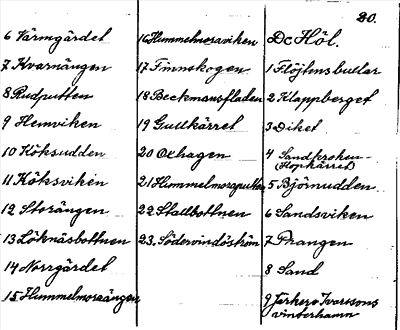 20.
6 Värmgärdet
7 Kvarnängen
8 Rudputten
9 Hemviken
10 Köksudden
11 Köksviken
12 Storängen
13 Löknäsbottnen
14 Norrgärdet
15 Hummelmoraängen
16 Hummelmoraviken
17 Finnskogen
18 Beckmansfladen
19 Gullkärret
20 Oxhagen
21 Hummelmoraputten
22 Stallbottnen
23. Södervindöström
Dc Höl.
1 Flöjtnsbullar
2 Klappberget
3 Diket
4 Sandkroken-
(Hopkärret)
5 Björnudden
6 Sandsviken
7 Prangen
8 Sand
9 Jerkers Ivarssons
vinterhamn